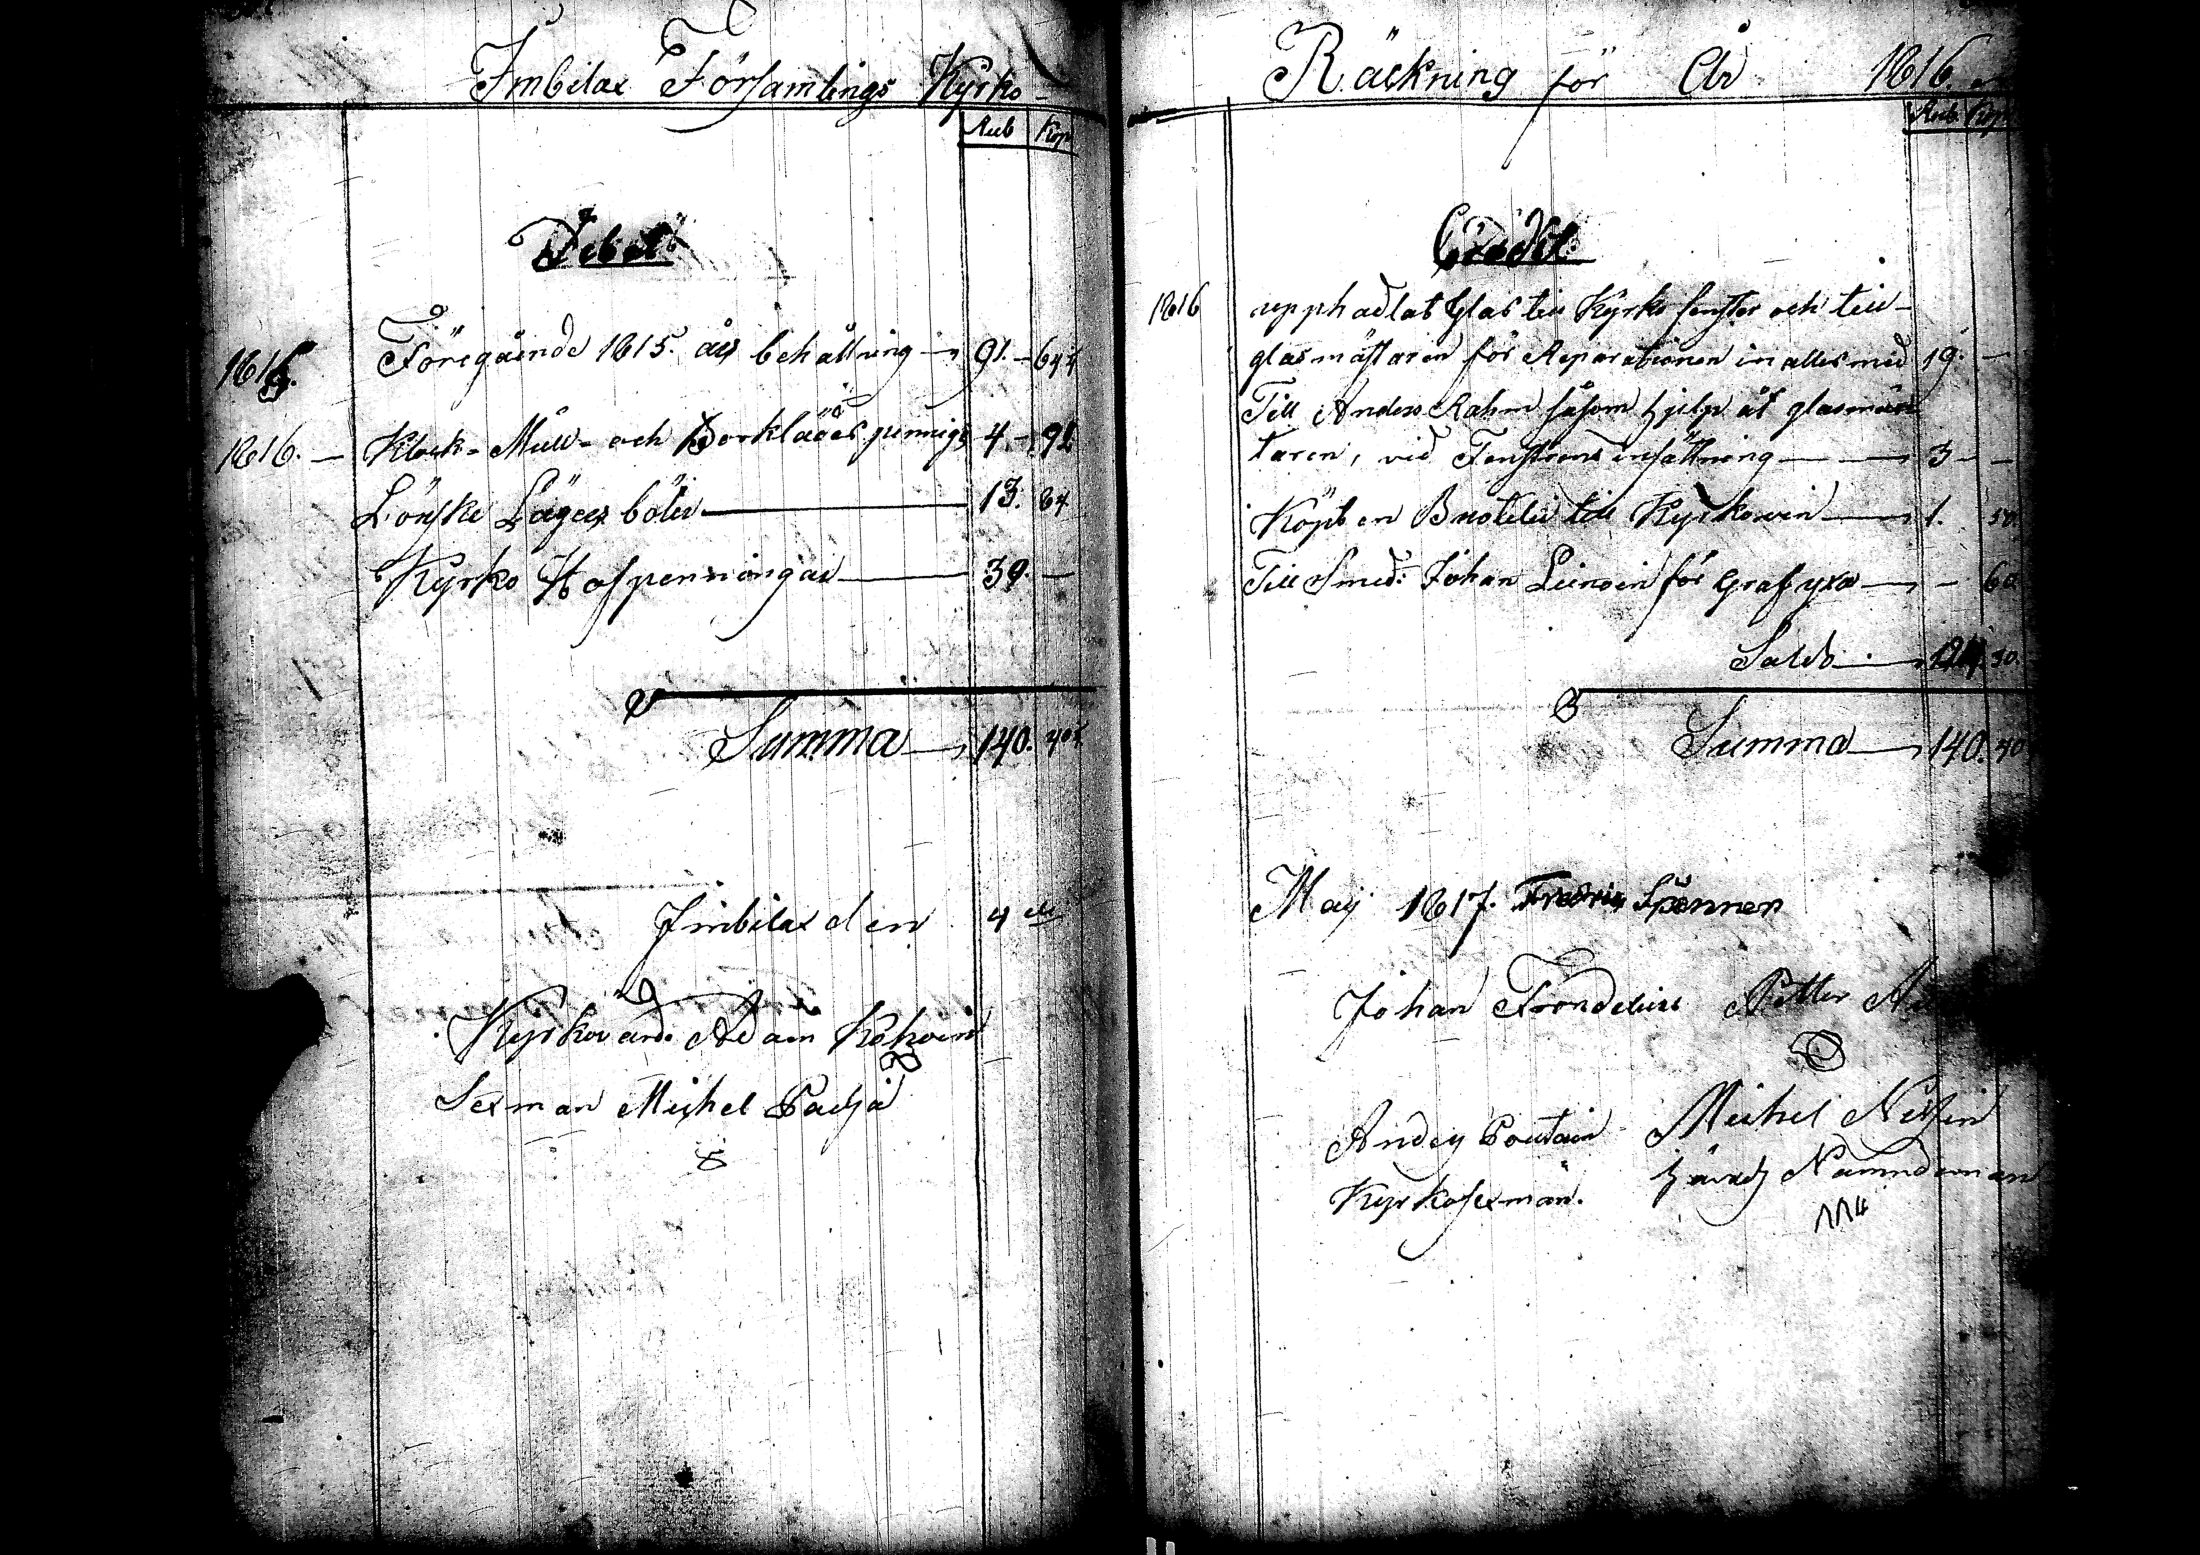 Imbilax Församlings Kyrko-
Rub Kop.
Debet
1816. Föregående 1815. års behållning 91. - 64¼
1816. Klock- Mull- och Bårklädes penning 4. - 92
Lönske Lägers böter 13. 84
Kyrko Hofpenningar 39. -
Summa 140.
Imbilax den 4de
Kyrkovärd. Adam Kokoin
Sexman Michel Padja
Räckning för År 1816.
Rub. Kop.
Credit.
1816 upphadlat Glas till Kyrko fenster och till
glasmästaren för Reparationen in alles med 19. -
Till Anders Rahm såsom hjelp åt glasmäs
taren, vid Fenstrens insättning 3 - -
Köpt en Butelie till Kyrkowin 1. 50.
Till Smed: Johan Leinoin för Graf yxa - 60.
Saldo 30.
Summa 140. 40
Maij 1817. Fredric Spennen
Johan Frondelius Petter
Anders Poutain Michel Nissin
Kyrkosexman. härads Nämndeman